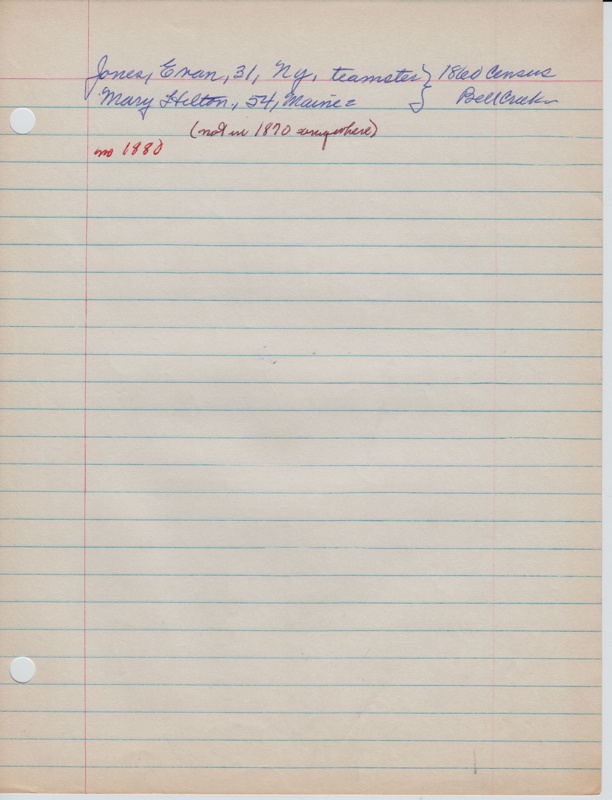 Jones, Evan, 31, Ny, teamster } 1860 Census
Mary Hilton, 54, Maine = } Bell Creek
(not in 1870 anywhere)
no 1880